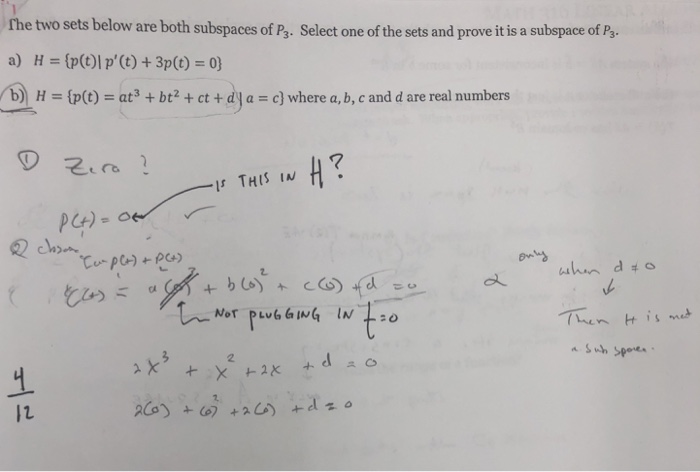 The two sets below are both subspaces of P₃. Select one of the sets and prove it is a subspace of P₃.
a) H = {p(t)| p′(t) + 3p(t) = 0}
b) H = {p(t) = at³ + bt² + ct + d| a = c} where a, b, c and d are real numbers
① Zero?
IS THIS IN H?
P(t) = 0
②
p(t) + p(t)
+ b(0)² + c(0) + d = 0
NOT PLUGGING IN t=0
only when d ≠ 0
Then H is not
a sub space.
2x³ + x² + 2x + d = 0
2(0) + (0)² + 2(0) + d = 0
4
12